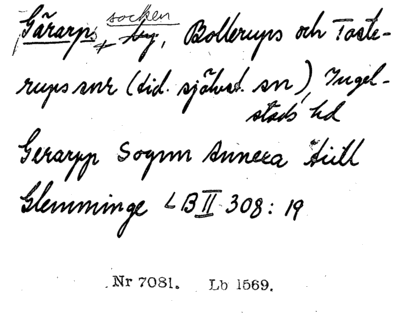 Gärarps socken
+ by, Bollerups och Toste-
rups snr (tid. självst. sn), Ingel-
stads hd
Gerarpp Sognn Annexa till
Glemminge LB II 308: 19
Nr 7081. Lb 1569.